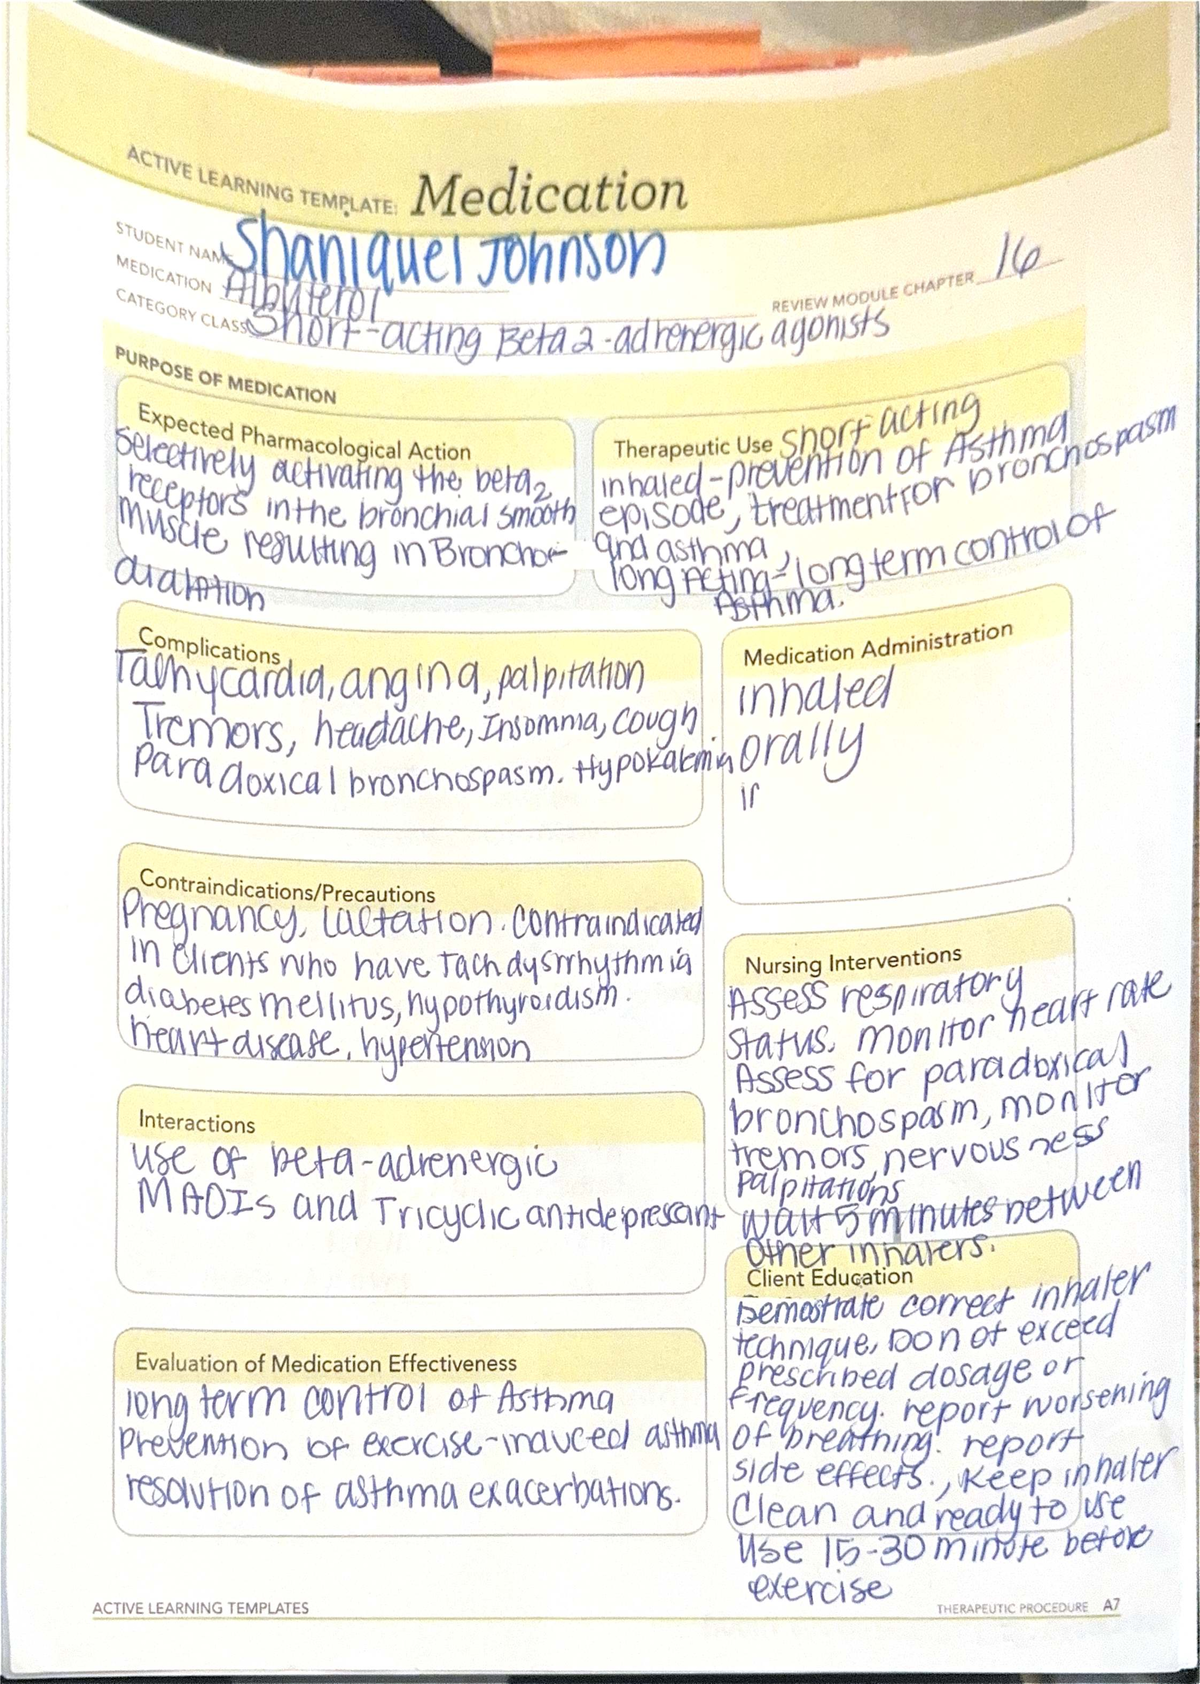 ACTIVE LEARNING TEMPLATE: Medication
STUDENT NAME Shaniquel Johnson
MEDICATION Albuterol
REVIEW MODULE CHAPTER 16
CATEGORY CLASS Short-acting Beta2-adrenergic agonists
PURPOSE OF MEDICATION
Expected Pharmacological Action
Selectively activating the beta2
receptors in the bronchial smooth
muscle resulting in Broncho-
dialation
Therapeutic Use Short acting
inhaled-prevention of Asthma
episode, treatment for bronchospasm
and asthma,
long Acting-long term control of
Asthma.
Complications
Tachycardia, angina, palpitation
Tremors, headache, Insomnia, cough
Paradoxical bronchospasm. Hypokalemia
Medication Administration
inhaled
orally
Contraindications/Precautions
Pregnancy, Lactation. contraindicated
in clients who have tachdysrrhythmia
diabetes mellitus, hypothyroidism.
heart disease, hypertension
Nursing Interventions
Assess respiratory
status. monitor heart rate
Assess for paradoxical
bronchospasm, monitor
tremors, nervousness
palpitations
wait 5 minutes between
other inhalers.
Interactions
use of beta-adrenergic
MAOIs and Tricyclic antidepressant
Client Education
Demostrate correct inhaler
technique, Do not exceed
prescribed dosage or
frequency. report worsening
of breathing. report
side effects., Keep inhaler
Clean and ready to use
use 15-30 minute before
exercise
Evaluation of Medication Effectiveness
long term control of Asthma
Prevention of exercise-induced asthma
resolution of asthma exacerbations.
ACTIVE LEARNING TEMPLATES
THERAPEUTIC PROCEDURE A7